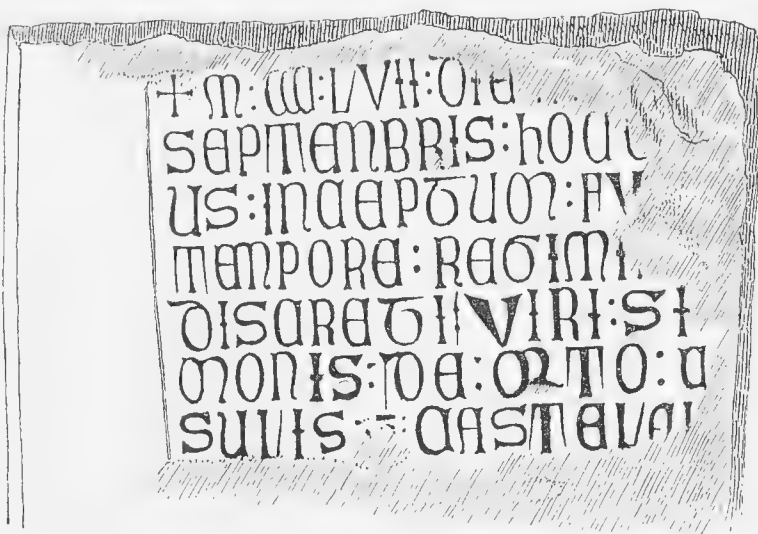 + M : CCC : LVII : DIE ...
SEPTEMBRIS : hOC
US : INCEPTUM : FU
TEMPORE : REGIMI
DISCRETI VIRI : SI
MONIS : DE : ORTO : C
SULIS : CASTELA